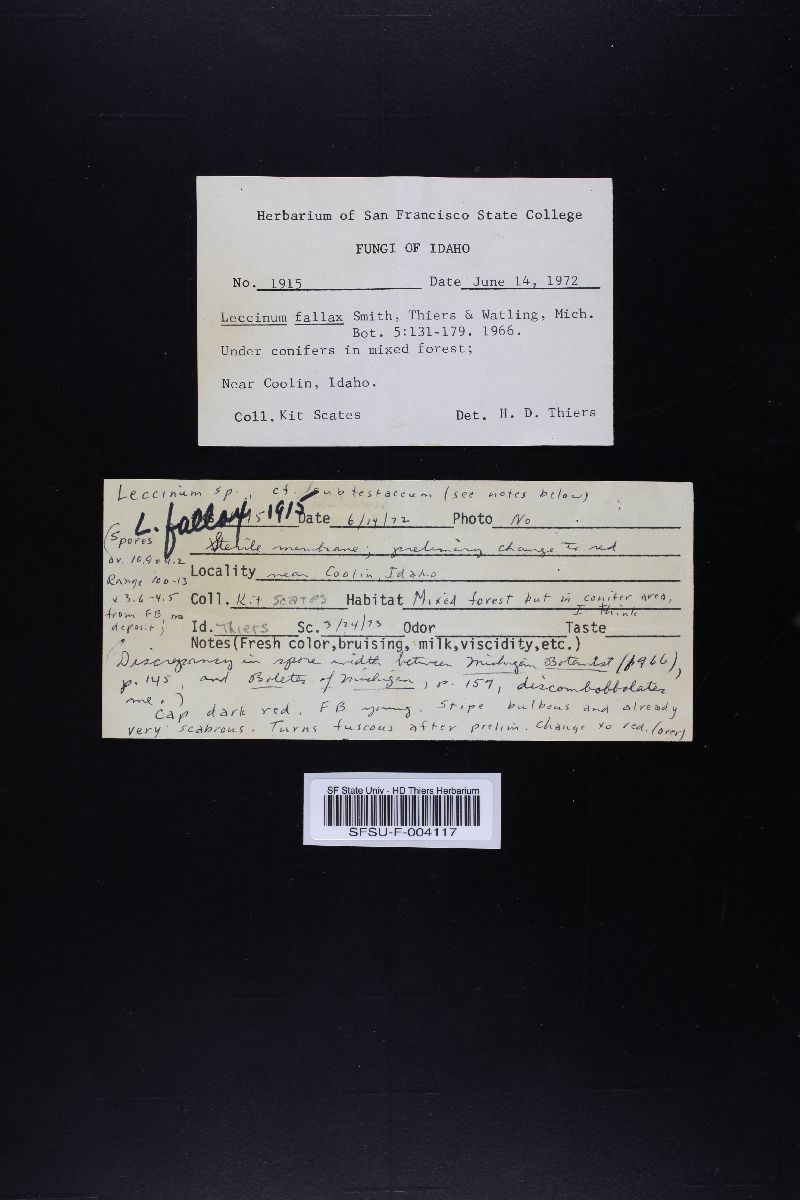 Herbarium of San Francisco State College
FUNGI OF IDAHO
No. 1915 Date June 14, 1972
Leccinum fallax Smith, Thiers & Watling, Mich.
Bot. 5:131-179. 1966.
Under conifers in mixed forest;
Near Coolin, Idaho.
Coll. Kit Scates Det. H. D. Thiers
Leccinum sp., cf. subtestaceum (see notes below)
L. fallax 1915 Date 6/14/72 Photo No
Sterile membrane; preliminary change to red
Locality near Coolin, Idaho
Coll. Kit Scates Habitat Mixed forest but in conifer area,
I think
Id. Thiers Sc. 3/24/73 Odor Taste
(Spores
av. 10.9 x 4.2
Range 100-13
x 3.6-4.5
from FB, no
deposit;
Notes(Fresh color,bruising, milk,viscidity,etc.)
Discrepancy in spore width between Michigan Botanist (1966),
p. 145, and Boletes of Michigan, p. 159, discombobbolates
me.)
Cap dark red. FB young. Stipe bulbous and already
very scabrous. Turns fuscous after prelim. change to red. (over)
SF State Univ - HD Thiers Herbarium
SFSU-F-004117